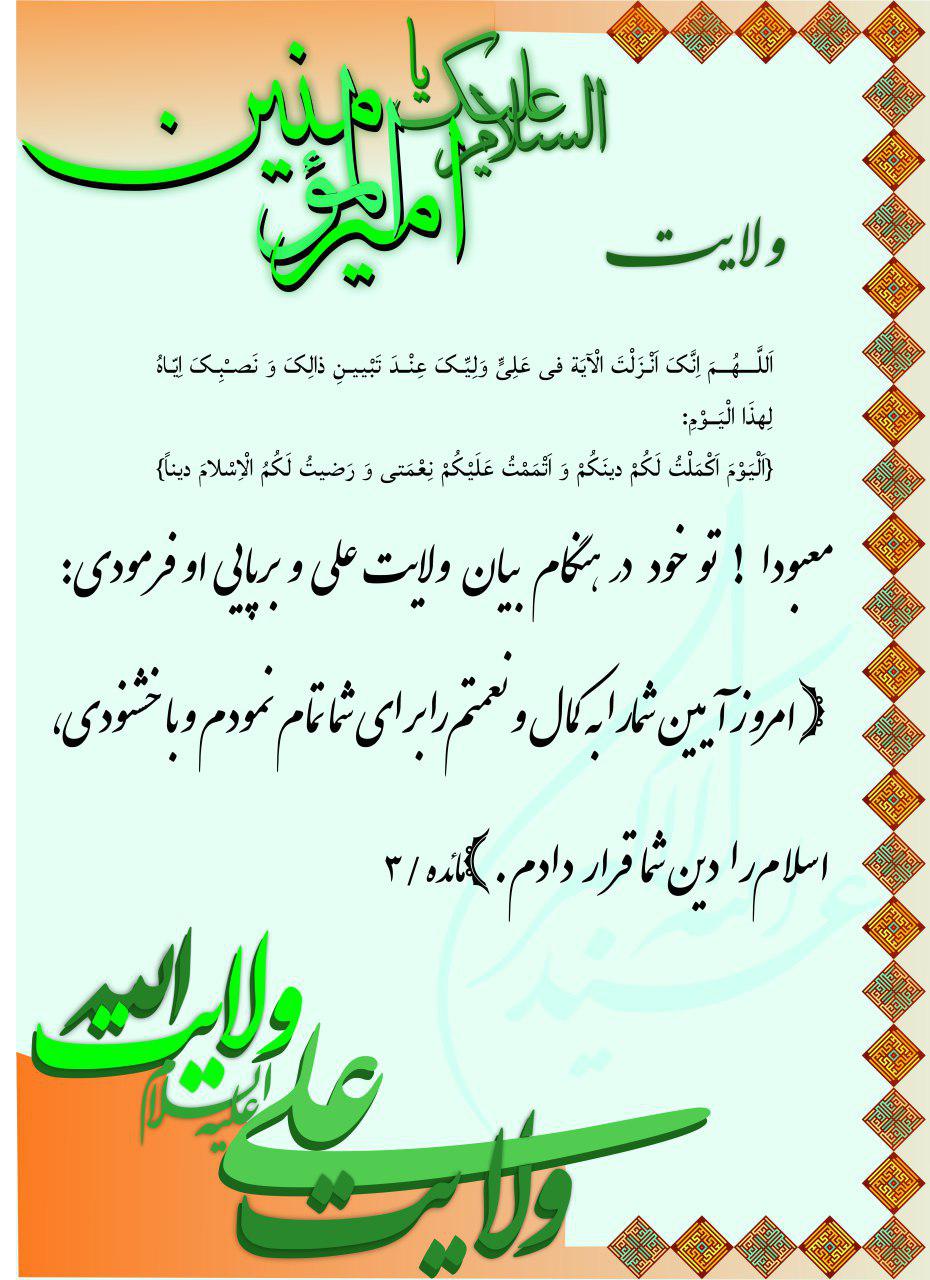 السلام علیک یا
امیرالمؤمنین
ولایت
اَللَّـهُـمَ اِنَّکَ اَنْـزَلْتَ الْآیَة فی عَلِیٍّ وَلِیِّـکَ عِنْـدَ تَبْیـیـنِ ذالِکَ وَ نَصْـبِـکَ اِیّـاهُ
لِهذَا الْیَــوْمِ:
{اَلْیَوْمَ اَکْمَلْتُ لَکُمْ دینَکُمْ وَ اَتْمَمْتُ عَلَیْکُمْ نِعْمَتی وَ رَضیتُ لَکُمُ الْاِسْلامَ دیناً}
معبودا ! تو خود در هنگام بیان ولایت علی و برپایی او فرمودی:
﴿امروز آیین شما را به کمال و نعمتم را برای شما تمام نمودم و با خشنودی،
اسلام را دین شما قرار دادم.﴾ مائده / ۳
ولایت الله
ولایت علی علیه السلام